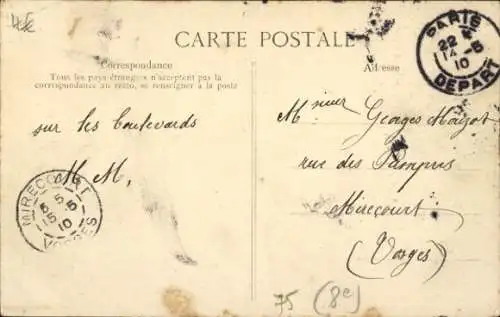 CARTE POSTALE
Correspondance
Tous les pays étrangers n'acceptent pas la
correspondance au recto, se renseigner à la poste
sur les boulevards
M M,
MIRECOURT
5 5-5
10
VOSGES
Adresse
PARIS
22
14-5
10
DEPART
Monsieur Georges
rue des Pampris
Mirecourt
(Vosges)
75 (8e)